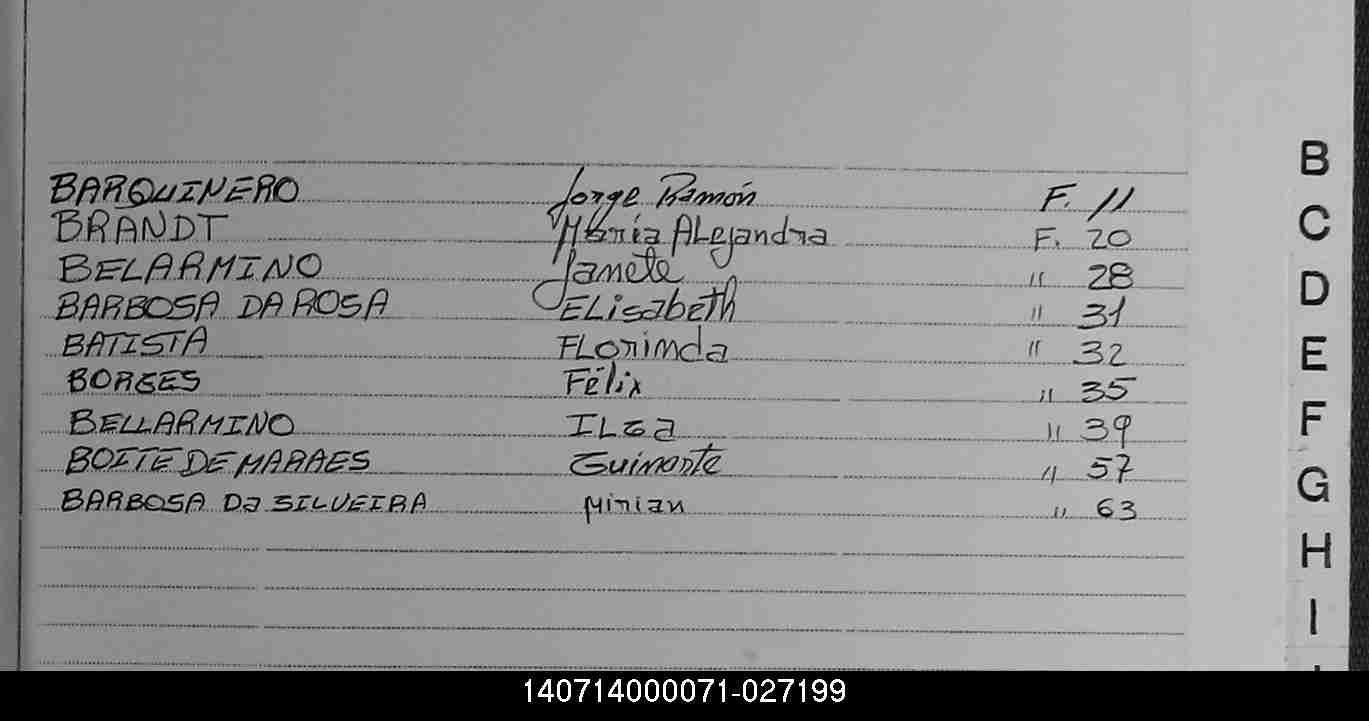 BARQUINERO Jorge Ramón F. 11
BRANDT María ALejandra F. 20
BELARMINO Janete " 28
BARBOSA DA ROSA ELisabeth " 31
BATISTA FLorinda " 32
BORGES Félix " 35
BELLARMINO ILGa " 39
BOITE DE MARAES " 57
BARBOSA Da SILVEIRA Mirian " 63
B
C
D
E
F
G
H
I
140714000071-027199